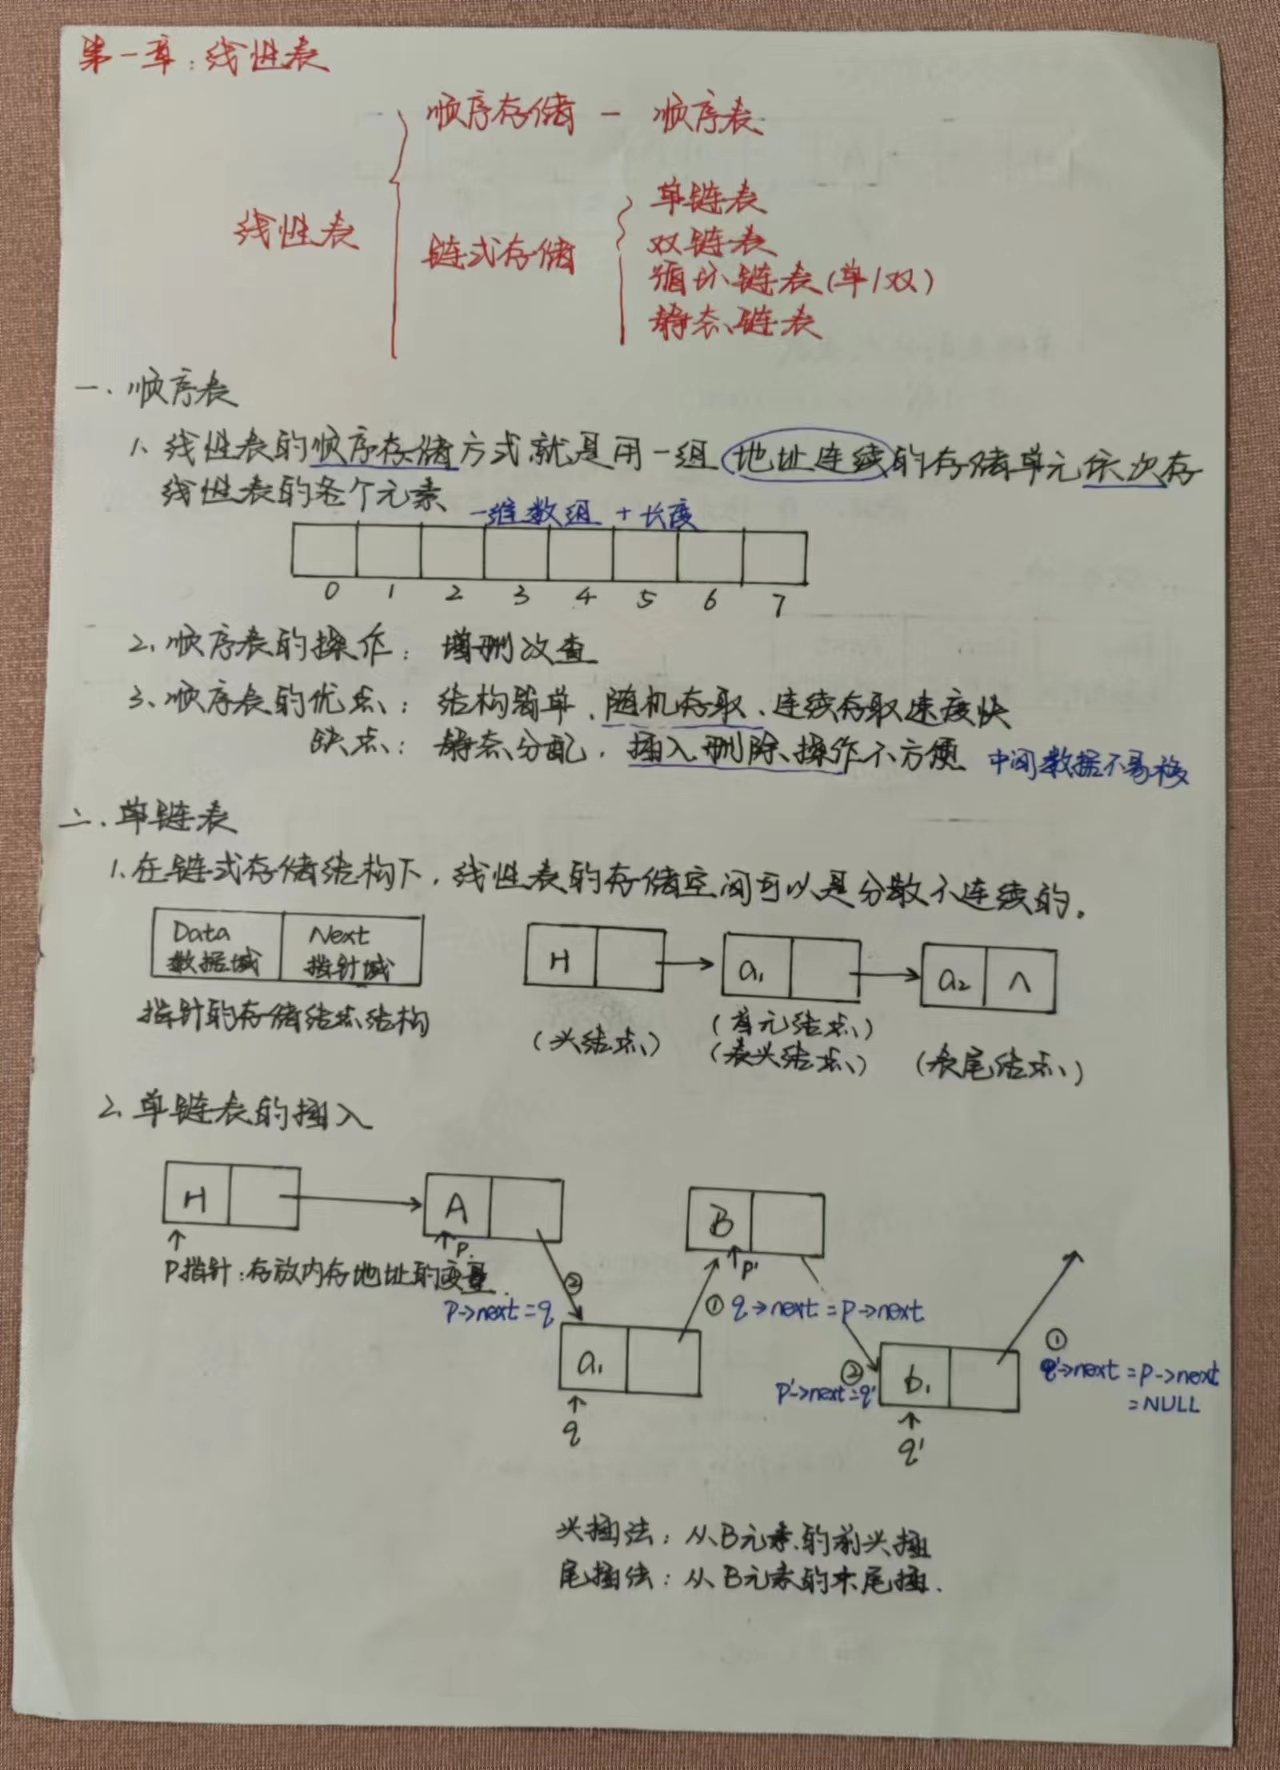 第一章：线性表
顺序存储 — 顺序表
线性表
链式存储
单链表
双链表
循环链表(单/双)
静态链表
一、顺序表
1. 线性表的顺序存储方式就是用一组地址连续的存储单元依次存
线性表的各个元素
一维数组 + 长度
0 1 2 3 4 5 6 7
2. 顺序表的操作：增删改查
3. 顺序表的优点：结构简单、随机存取、连续存取速度快
缺点：静态分配，插入删除操作不方便 中间数据不易移
二、单链表
1. 在链式存储结构下，线性表的存储空间可以是分散不连续的。
Data Next
数据域 指针域
H a₁ a₂ ∧
指针的存储结点结构
(头结点) (首元结点)
(表头结点) (表尾结点)
2. 单链表的插入
H A B
P指针：存放内存地址的变量
p
p'
② p->next=q
① q->next=p->next
a₁
q
② p'->next=q'
b₁
q'
① q'->next=p->next
=NULL
头插法：从B元素的前头插
尾插法：从B元素的末尾插.